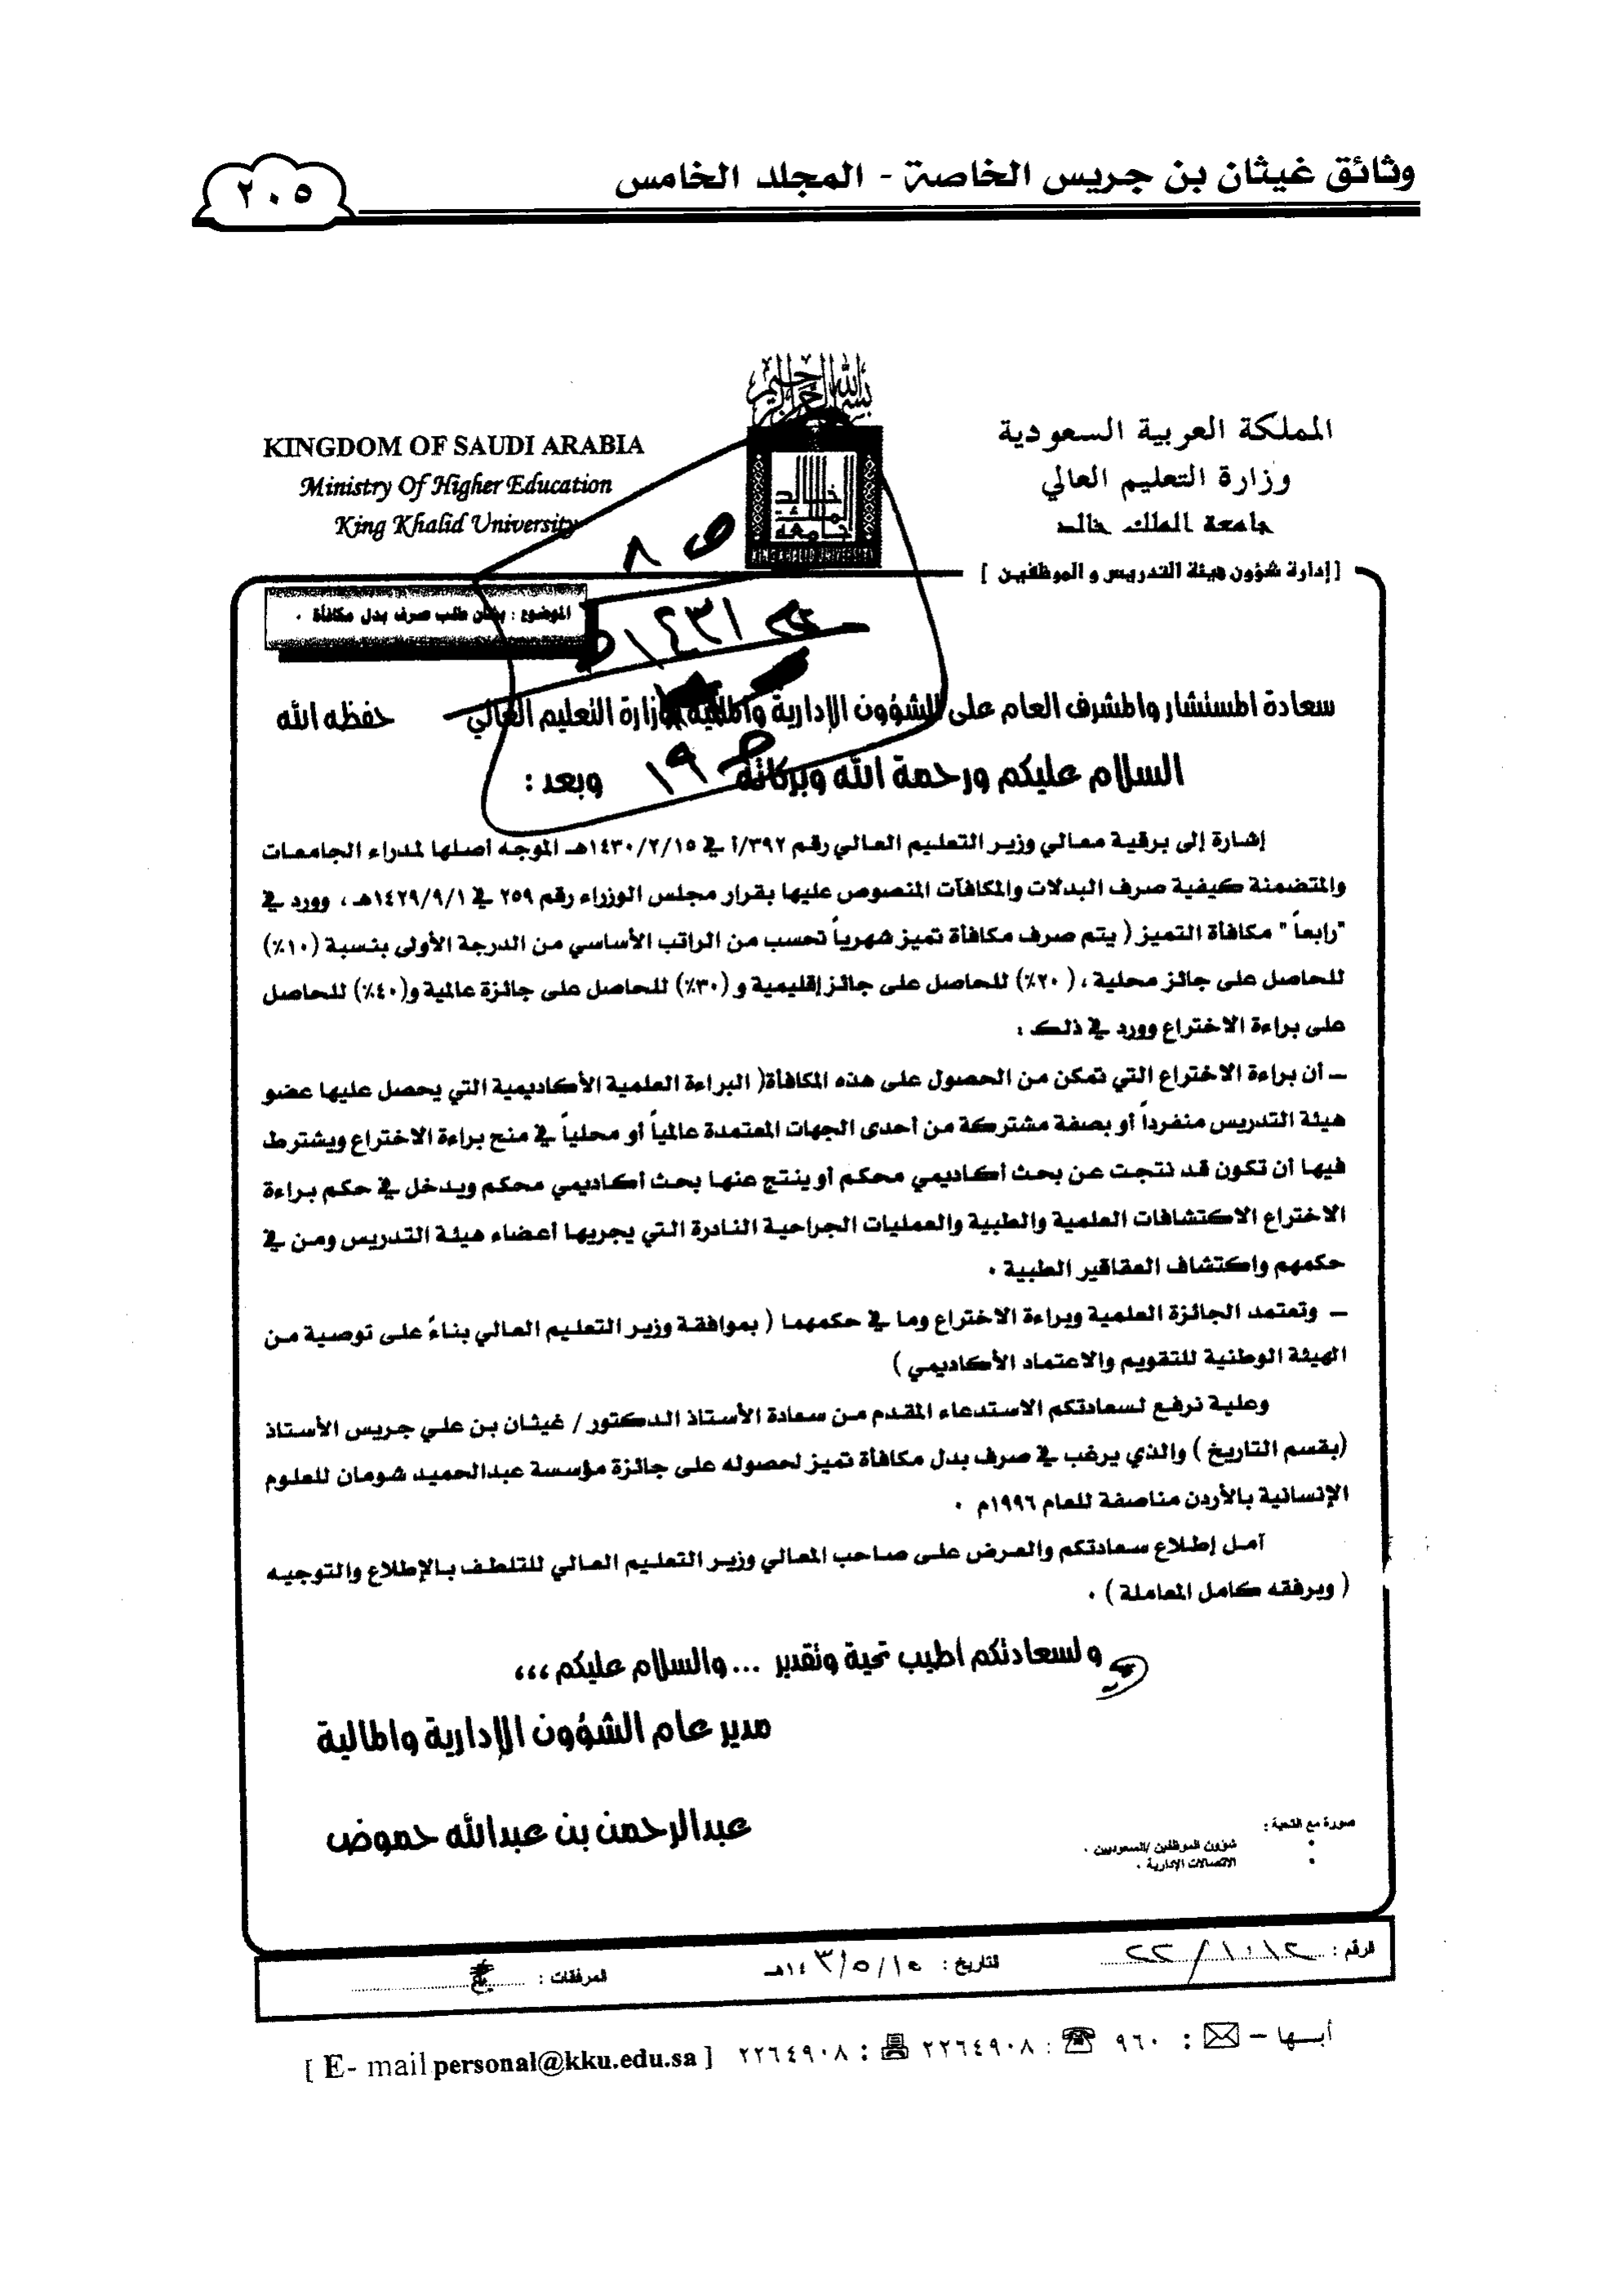 وثائق غيثان بن جريس الخاصة - المجلد الخامس
٢٠٥
المملكة العربية السعودية
وزارة التعليم العالي
جامعة الملك خالد
[ إدارة شؤون هيئة التدريس و الموظفين ]
KINGDOM OF SAUDI ARABIA
Ministry Of Higher Education
King Khalid University
بسم الله الرحمن الرحيم
جامعة الملك خالد
KING KHALID UNIVERSITY
ص ٨
الموضوع : بشأن طلب صرف بدل مكافأة .
سعادة المستشار والمشرف العام على الشؤون الإدارية والمالية بوزارة التعليم العالي حفظه الله
السلام عليكم ورحمة الله وبركاتة وبعد :
ص ١٩
إشارة إلى برقية معالي وزير التعليم العالي رقم ٣٩٢/أ في ١٤٣٠/٢/١٥هـ الموجه أصلها لمدراء الجامعات
والمتضمنة كيفية صرف البدلات والمكافآت المنصوص عليها بقرار مجلس الوزراء رقم ٢٥٩ في ١٤٢٩/٩/١هـ ، وورد في
"رابعاً " مكافأة التميز ( يتم صرف مكافأة تميز شهرياً تحسب من الراتب الأساسي من الدرجة الأولى بنسبة (١٠٪)
للحاصل على جائز محلية ، ( ٢٠٪) للحاصل على جائز إقليمية و (٣٠٪) للحاصل على جائزة عالمية و(٤٠٪) للحاصل
على براءة الاختراع وورد في ذلك :
– أن براءة الاختراع التي تمكن من الحصول على هذه المكافأة( البراءة العلمية الأكاديمية التي يحصل عليها عضو
هيئة التدريس منفرداً أو بصفة مشتركة من أحدى الجهات المعتمدة عالمياً أو محلياً في منح براءة الاختراع ويشترط
فيها أن تكون قد نتجت عن بحث أكاديمي محكم أو ينتج عنها بحث أكاديمي محكم ويدخل في حكم براءة
الاختراع الاكتشافات العلمية والطبية والعمليات الجراحية النادرة التي يجريها أعضاء هيئة التدريس ومن في
حكمهم وإكتشاف العقاقير الطبية .
– وتعتمد الجائزة العلمية وبراءة الاختراع وما في حكمهما ( بموافقة وزير التعليم العالي بناءً على توصية من
الهيئة الوطنية للتقويم والاعتماد الأكاديمي )
وعلية نرفع لسعادتكم الاستدعاء المقدم من سعادة الأستاذ الدكتور / غيثان بن علي جريس الأستاذ
(بقسم التاريخ ) والذي يرغب في صرف بدل مكافأة تميز لحصوله على جائزة مؤسسة عبدالحميد شومان للعلوم
الإنسانية بالأردن مناصفة للعام ١٩٩٦م .
آمل إطلاع سعادتكم والعرض على صاحب المعالي وزير التعليم العالي للتلطف بالإطلاع والتوجيه
( ويرفقه كامل المعاملة ) .
ولسعادتكم اطيب تحية وتقدير ... والسلام عليكم ،،،
مدير عام الشؤون الإدارية والمالية
عبدالرحمن بن عبدالله حموض
صورة مع التحية :
شؤون الموظفين /السعوديين .
الاتصالات الإدارية .
الرقم : ٢٢/١٠١٢ التاريخ : ١٤٣/٥/١٥هـ المرفقات :
أبـها – : ٩٦٠ : ٢٢٦٤٩٠٨ : ٢٢٦٤٩٠٨ [ E- mail personal@kku.edu.sa ]